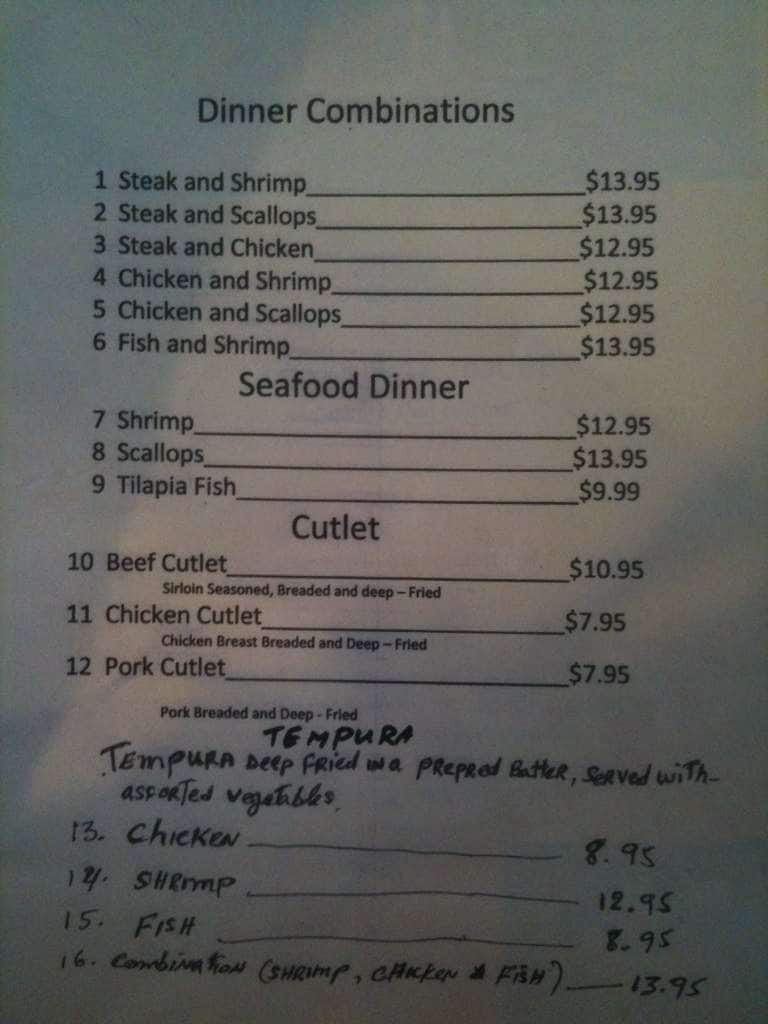 Dinner Combinations
1 Steak and Shrimp $13.95
2 Steak and Scallops $13.95
3 Steak and Chicken $12.95
4 Chicken and Shrimp $12.95
5 Chicken and Scallops $12.95
6 Fish and Shrimp $13.95
Seafood Dinner
7 Shrimp $12.95
8 Scallops $13.95
9 Tilapia Fish $9.99
Cutlet
10 Beef Cutlet $10.95
Sirloin Seasoned, Breaded and deep – Fried
11 Chicken Cutlet $7.95
Chicken Breast Breaded and Deep – Fried
12 Pork Cutlet $7.95
Pork Breaded and Deep - Fried
TEMPURA
TEMPURA Deep Fried in a prepred Batter, served with
assorted vegetables.
13. Chicken 8.95
14. SHRimp 12.95
15. FISH 8.95
16. Combination (SHRimp, CHicken & FiSH) 13.95